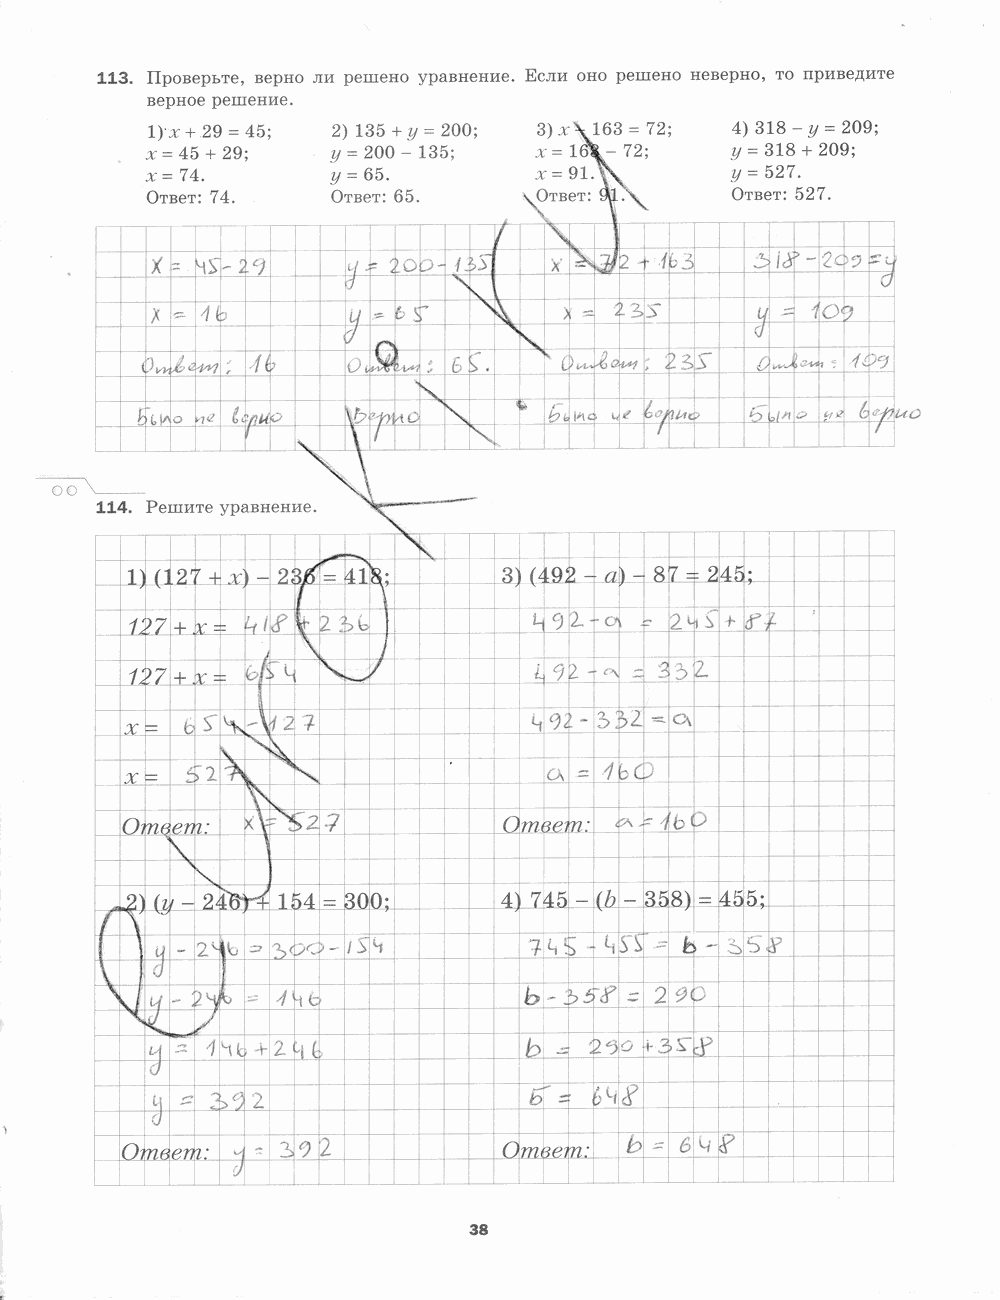 113. Проверьте, верно ли решено уравнение. Если оно решено неверно, то приведите
верное решение.
1) x + 29 = 45; 2) 135 + y = 200; 3) x − 163 = 72; 4) 318 − y = 209;
x = 45 + 29; y = 200 − 135; x = 163 − 72; y = 318 + 209;
x = 74. y = 65. x = 91. y = 527.
Ответ: 74. Ответ: 65. Ответ: 91. Ответ: 527.
x = 45-29 y = 200-135 x = 72 + 163 318-209=y
x = 16 y = 65 x = 235 y = 109
Ответ: 16 Ответ: 65. Ответ: 235 Ответ: 109
Было не верно Верно Было не верно Было не верно
114. Решите уравнение.
1) (127 + x) − 236 = 418; 3) (492 − a) − 87 = 245;
127 + x = 418 + 236 492-a = 245+87
127 + x = 654 492-a = 332
x = 654-127 492-332=a
x = 527 a = 160
Ответ: x = 527 Ответ: a=160
2) (y − 246) + 154 = 300; 4) 745 − (b − 358) = 455;
y - 246 = 300-154 745-455= b-358
y - 246 = 146 b-358 = 290
y = 146+246 b = 290+358
y = 392 б = 648
Ответ: y = 392 Ответ: b = 648
38